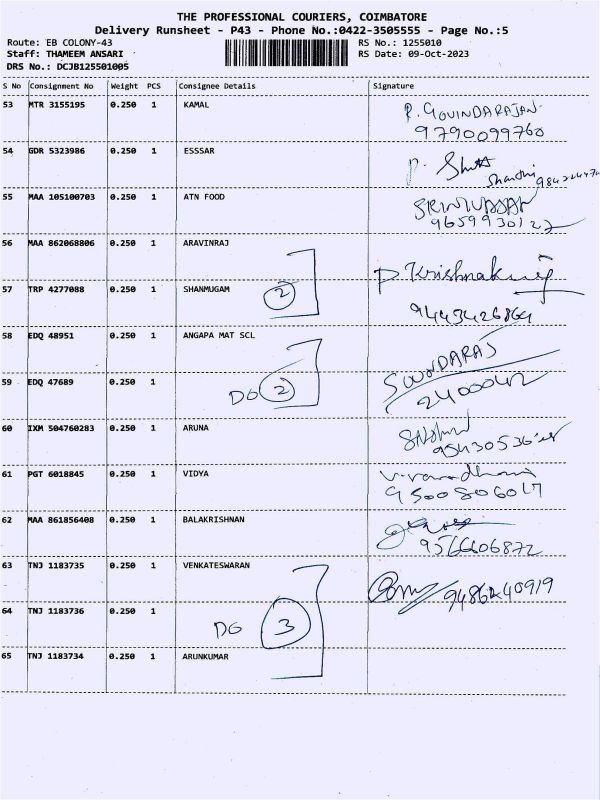 THE PROFESSIONAL COURIERS, COIMBATORE
Delivery Runsheet - P43 - Phone No.:0422-3505555 - Page No.:5
Route: EB COLONY-43 RS No.: 1255010
Staff: THAMEEM ANSARI RS Date: 09-Oct-2023
DRS No.: DCJB125501005
S No Consignment No Weight PCS Consignee Details Signature
53 MTR 3155195 0.250 1 KAMAL P. GOVINDARAJAN
9790099760
54 GDR 5323986 0.250 1 ESSSAR
Shanthi
55 MAA 105100703 0.250 1 ATN FOOD SRINIVASAN
9659930127
56 MAA 862068806 0.250 1 ARAVINRAJ
P Krishnakumar
57 TRP 4277088 0.250 1 SHANMUGAM 2
9443426864
58 EDQ 48951 0.250 1 ANGAPA MAT SCL
SOUNDARAJ
59 EDQ 47689 0.250 1 DO 2 2400042
60 IXM 504760283 0.250 1 ARUNA
61 PGT 6018845 0.250 1 VIDYA
9500806017
62 MAA 861856408 0.250 1 BALAKRISHNAN
9566606872
63 TNJ 1183735 0.250 1 VENKATESWARAN
9486240919
64 TNJ 1183736 0.250 1 DO 3
65 TNJ 1183734 0.250 1 ARUNKUMAR